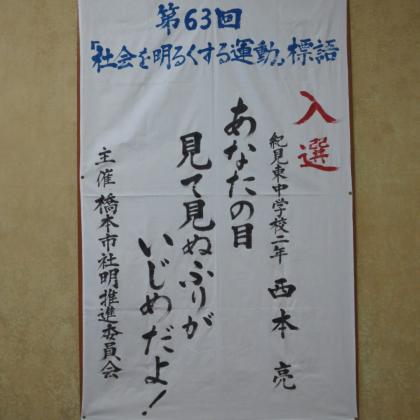 第63回
『社会を明るくする運動』標語
入選
紀見東中学校二年 西本 亮
あなたの目
見て見ぬふりが
いじめだよ!
主催 橋本市社明推進委員会